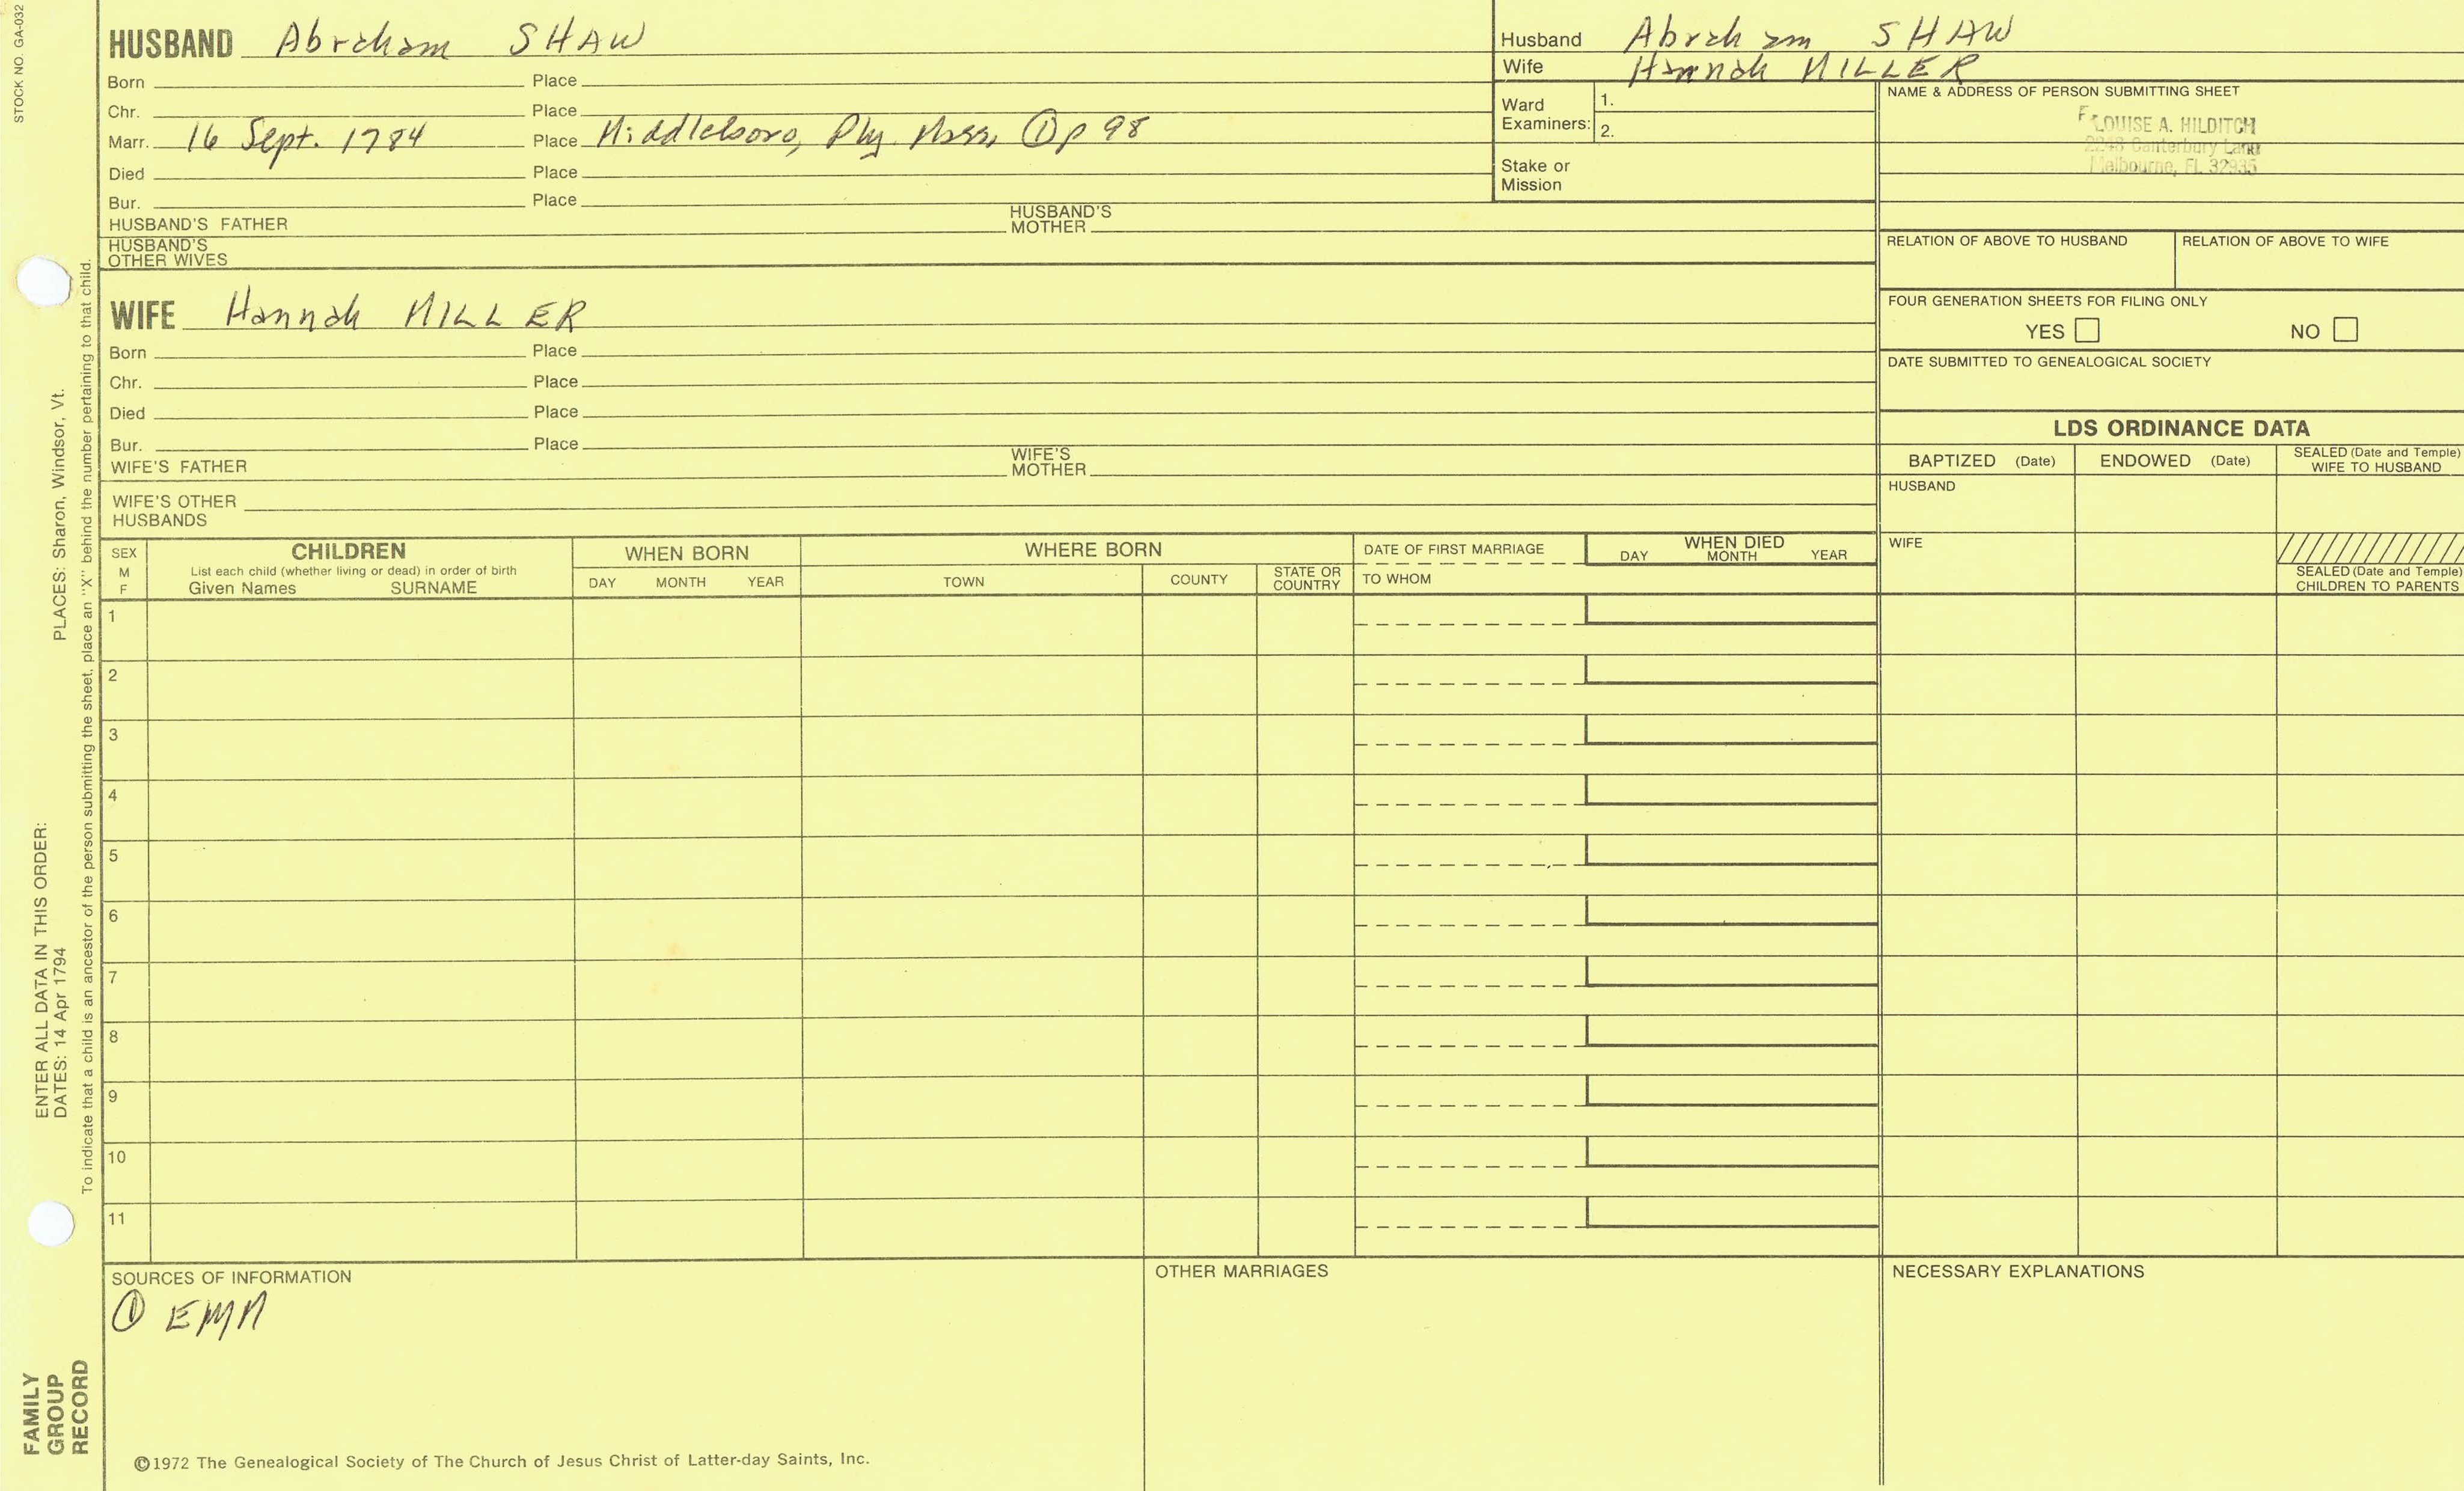 STOCK NO. GA-032
HUSBAND Abraham SHAW
Born Place
Chr. Place
Marr. 16 Sept. 1784 Place Middleboro, Ply. Mass, ① p 98
Died Place
Bur. Place
HUSBAND'S FATHER HUSBAND'S MOTHER
HUSBAND'S OTHER WIVES
Husband Abraham SHAW
Wife Hannah MILLER
Ward Examiners: 1.
2.
Stake or Mission
NAME & ADDRESS OF PERSON SUBMITTING SHEET
LOUISE A. HILDITCH
2248 Canterbury Lane
Melbourne, FL 32935
RELATION OF ABOVE TO HUSBAND RELATION OF ABOVE TO WIFE
FOUR GENERATION SHEETS FOR FILING ONLY
YES NO
DATE SUBMITTED TO GENEALOGICAL SOCIETY
WIFE Hannah MILLER
Born Place
Chr. Place
Died Place
Bur. Place
WIFE'S FATHER WIFE'S MOTHER
WIFE'S OTHER HUSBANDS
LDS ORDINANCE DATA
BAPTIZED (Date) ENDOWED (Date) SEALED (Date and Temple) WIFE TO HUSBAND
HUSBAND
WIFE
SEALED (Date and Temple) CHILDREN TO PARENTS
SEX M F
CHILDREN
List each child (whether living or dead) in order of birth
Given Names SURNAME
WHEN BORN
DAY MONTH YEAR
WHERE BORN
TOWN COUNTY STATE OR COUNTRY
DATE OF FIRST MARRIAGE
TO WHOM
WHEN DIED
DAY MONTH YEAR
1
2
3
4
5
6
7
8
9
10
11
SOURCES OF INFORMATION
① EMM
OTHER MARRIAGES
NECESSARY EXPLANATIONS
©1972 The Genealogical Society of The Church of Jesus Christ of Latter-day Saints, Inc.
FAMILY GROUP RECORD
ENTER ALL DATA IN THIS ORDER:
DATES: 14 Apr 1794 PLACES: Sharon, Windsor, Vt.
To indicate that a child is an ancestor of the person submitting the sheet, place an "X" behind the number pertaining to that child.